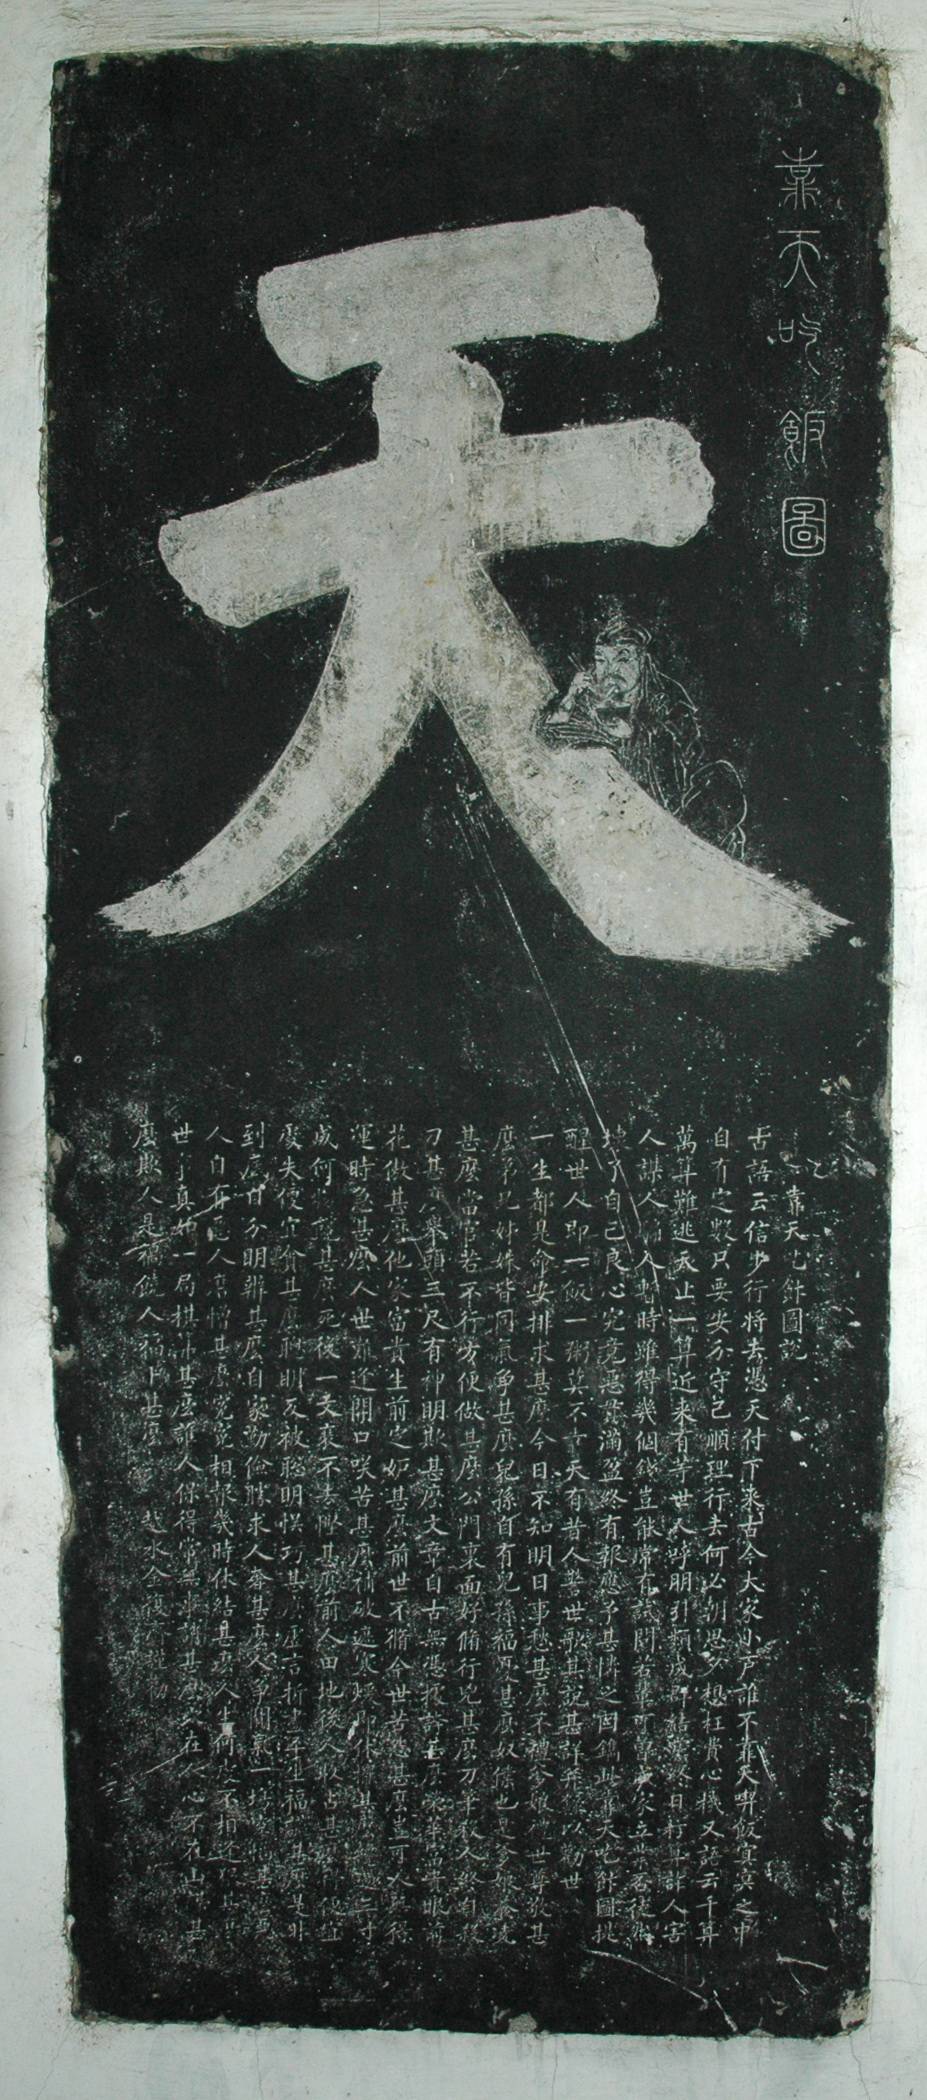 靠天吃飯圖
天
靠天吃飯圖說
古語云信步行將去憑天付下來古今大家小戶誰不靠天喫飯冥冥之中
自有定數只要安分守己順理行去何必朝思夕想枉費心機又語云千算
萬算難逃天止一算近來有等世人呼朋引類成群結黨終日打算詐人害
人謀人人暫時雖得幾個錢豈能常有試問若輩可曾成家立業否徒然
壞了自己良心究竟惡貫滿盈終有報應予甚憐之因鐫此靠天吃飯圖提
醒世人即一飯一粥莫不由天有昔人警世歌其說甚詳并錄以勸世
一生都是命安排求甚麼今日不知明日事愁甚麼不禮爹娘禮世尊敬甚
麼弟兄姊妹皆同氣爭甚麼兒孫自有兒孫福憂甚麼奴僕也是爹娘養凌
甚麼當官若不行方便做甚麼公門裏面好脩行兇甚麼刀筆殺人終自殺
刀甚麼舉頭三尺有神明欺甚麼文章自古無憑據誇甚麼榮華富貴眼前
花傲甚麼他家富貴生前定妒甚麼前世不脩今世苦怨甚麼豈可人無得
運時急甚麼人世難逢開口咲苦甚麼補破遮寒暖即休擺甚麼過三寸
成何物饞甚麼死後一文帶不去慳甚麼前人田地後人收占甚麼得便宜
處失便宜貪甚麼聰明反被聰明悞巧甚麼虛言折盡平生福謊甚麼是非
到底見分明辯甚麼自家勤儉勝求人奢甚麼人爭閒氣一場甚麼
人自有惡人磨憎甚麼冤冤相報幾時休結甚麼人生何處不相逢甚
世事真如一局棋算甚麼誰人保得常無事誚甚麼穴在人心不在山謀甚
麼欺人是禍饒人福卜甚麼